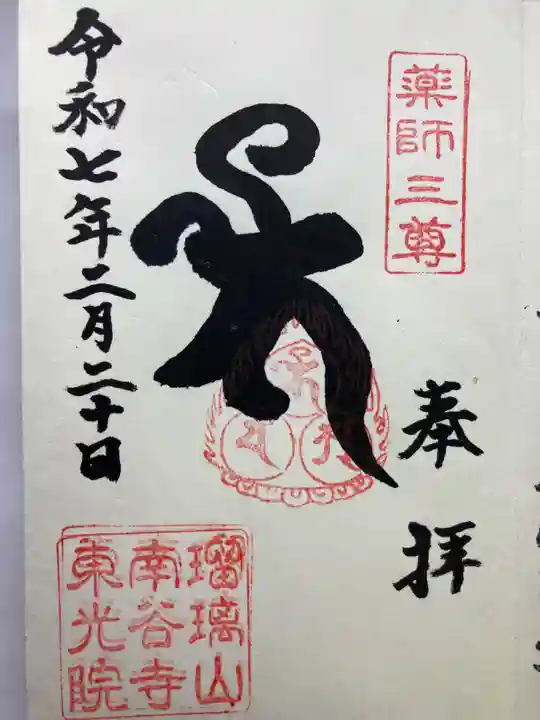 薬師三尊
奉拝
令和七年二月二十日
瑠璃山
南谷寺
東光院